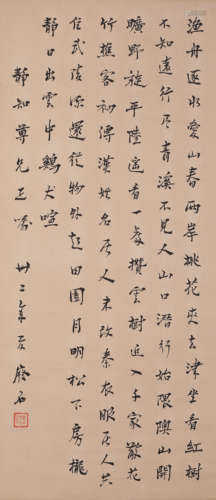 漁舟逐水愛山春兩岸桃花夾去津坐看紅樹
不知遠行盡青溪不見人山口潛行始隈隩山開
曠野旋平陸遙看一處攢雲樹近入千家散花
竹樵客初傳漢姓名居人未改秦衣服居人共
住武陵源還從物外起田園月明松下房櫳
靜日出雲中鷄犬喧
靜知尊兄正
卅二年夏